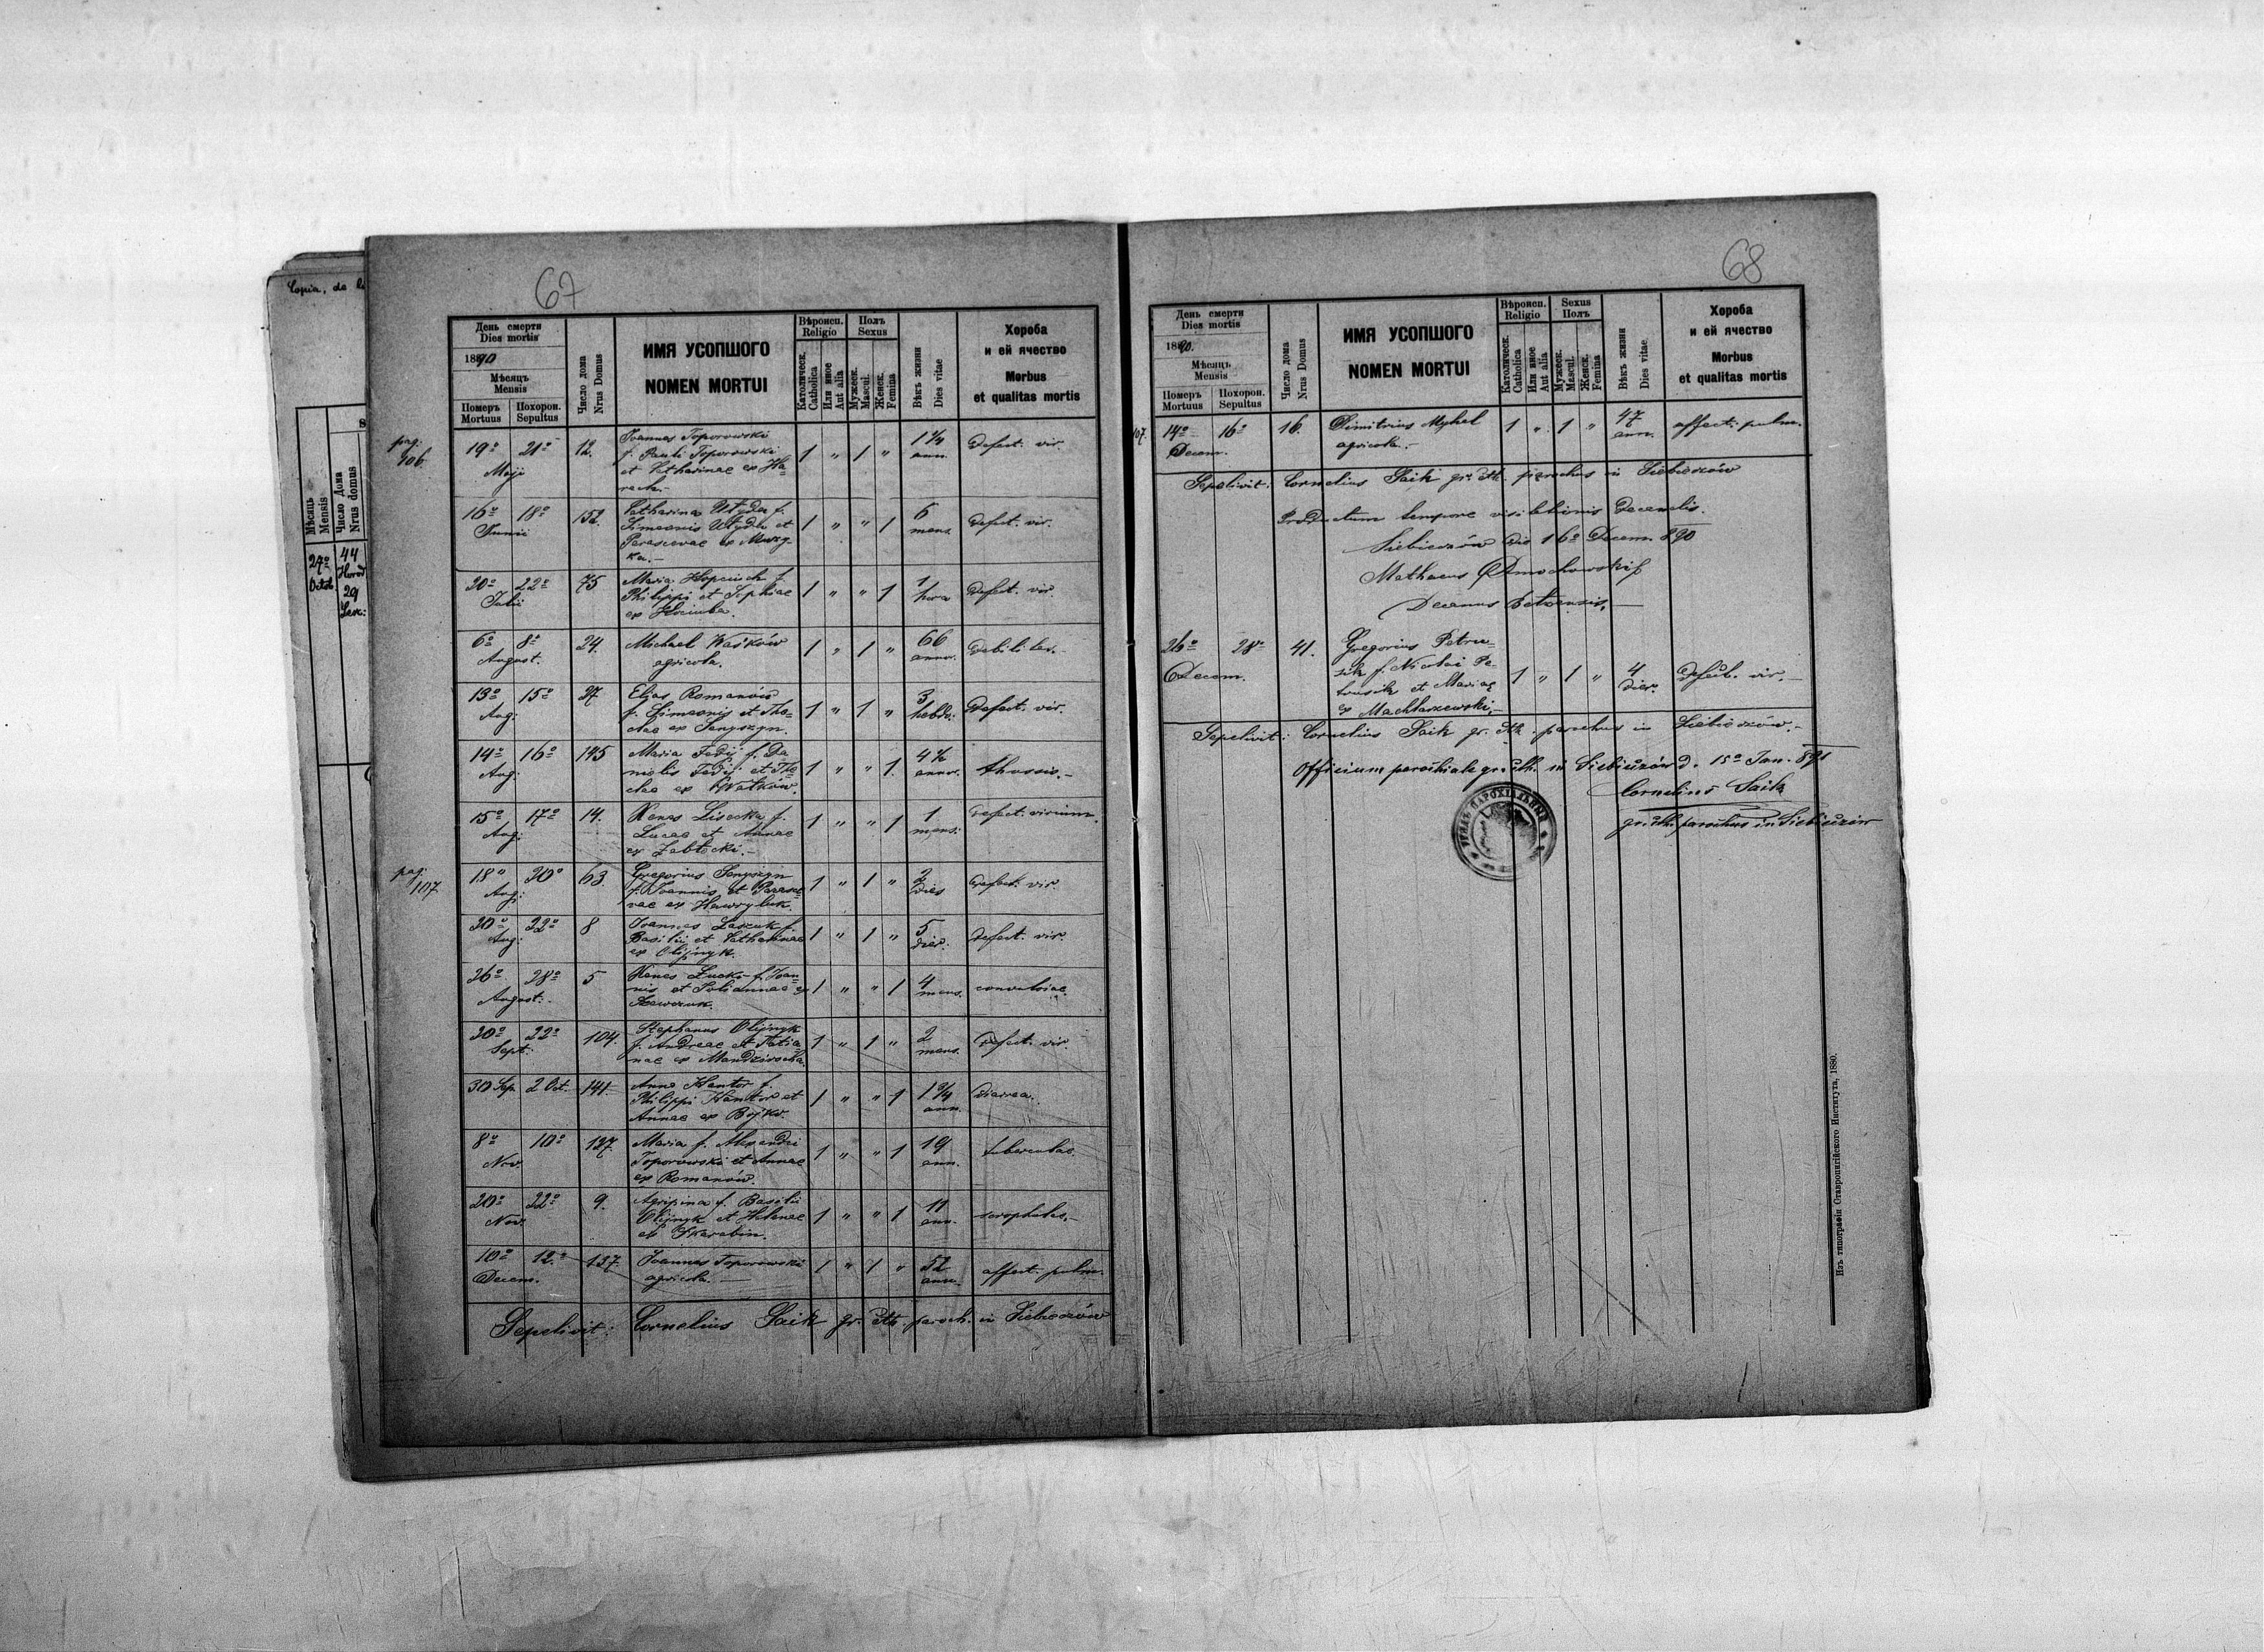 Copia, de
Мѣсяцъ
Mensis
Число Дома
Nrus domus
27º
Octob.
44
Horod
29
67
День смерти
Dies mortis
1890
Мѣсяцъ
Mensis
Померъ Похорон.
Mortuus Sepultus
Число дома
Nrus Domus
ИМЯ УСОПШОГО
NOMEN MORTUI
Вѣроисп.
Religio
Католическ.
Catholica
Или иное
Aut alia
Полъ
Sexus
Мужеск.
Mascul.
Женск.
Femina
Вѣкъ жизни
Dies vitae
Хороба
и ей ячество
Morbus
et qualitas mortis
pag. 106
19º 21º 12. Joannes Toporowski 1 " 1 " 1 ¼ Defect. vir.
Maji f. Pauli Toporowski ann.
et Catharinae ex Ha-
rech.-
16º 18º 152. Catharina Utyda f. 1 " " 1 6 Defect. vir.
Junii Simeonis Utyda et mens.
Parascevae ex Muzy-
ka.-
20º 22º 75 Maria f. 1 " " 1 1 Defect. vir.
Julii Philippi et Sophiae hora
ex
6º 8º 24. Michael Waśków 1 " 1 " 66 Debilitas.-
August. agricola. annor.
13º 15º 27 Elias Romanów 1 " 1 " 3 Defect. vir.
Aug: f. Simeonis et The- hebdo:
clae ex Senyszyn.
14º 16º 145 Maria Fedij f. Da- 1 " " 1. 4 ½
Aug: nielis Fedij et The- annor.
clae ex Kwatków.
15º 17º 14. Xenes Lisecka f. 1 " " 1 1 Defect. virium.
Aug: Lucae et Annae mens:
ex Zabłocki.-
pag. 107
18" 20º 63. Gregorius Senyszyn 1 " 1 " 2 Defect. vir.
Aug: f. Joannis et Parasce- dies
vae ex Hawryluk.
20º 22º 8 Joannes Laszuk f. 1 " 1 " 5 Defect. vir.
Aug: Basilii et Catharinae dier:
ex Olijnyk.
26º 28º 5 Xenes Lucko f. Joan- 1 " " 1 4 convulsiae.
August: nis et Juliannae ex mens.
Szewczuk.
20º 22º 104. Stephanus Olijnyk 1 " 1 " 2 Defect. vir.
Sept: f. Andreae et Tatia- mens.
nae ex
30 Sep. 2 Oct. 141. Anna Kantor f. 1 " " 1 1 ¾ Diarrea.
Philippi Kantor et ann.
Annae ex Bojko.
8º 10º 127. Maria f. Alexandri 1 " " 1 19 tuberculae.
Nov. Toporowski et Annae ann.
ex Romanów.
20º 22º 9. Agripina f. Basilii 1 " " 1 11 scrophulae.-
Nov. Olijnyk et Helenae ann.
ex Skarabin.
10º 12.º 127. Joannes Toporowski 1 " 1 " 52 affect. pulm.
Decem. agricola. — ann.
Sepelivit: Cornelius Saik gr. cth. paroch. in Siebieczów
68
День смерти
Dies mortis
1890.
Мѣсяцъ
Mensis
Померъ Похорон.
Mortuus Sepultus
Число дома
Nrus Domus
ИМЯ УСОПШОГО
NOMEN MORTUI
Вѣроисп.
Religio
Католическ.
Catholica
Или иное
Aut alia
Sexus
Полъ
Мужеск.
Mascul.
Женск.
Femina
Вѣкъ жизни
Dies vitae.
Хороба
и ей ячество
Morbus
et qualitas mortis
107.
14º 16º 16. Dimitrius Myhel 1 " 1 " 47 affect. pulm.
Decem. agricola.- ann.
Sepelivit: Cornelius Saik gr. cth. parochus in Siebieczów
Productum tempore visitationis Decanalis.
Siebieczów die 16º Decem. 890
Mathaeus Dmochowski
Decanus Belzensis.—
26º 28º 41. Gregorius Petru- 1 " 1 " 4 Defect. vir.-
Decem. sik f. Nicolai Pe- dier.
trusik et Mariae
ex Machtaszewski,-
Sepelivit: Cornelius Saik gr. cth. parochus in Siebieczów.-
Officium parochiale gr. cth. in Siebieczów d. 15º Jan. 891
Cornelius Saik
gr. cth. parochus in Siebieczów
Изъ типографіи Ставропигійского Института, 1880.